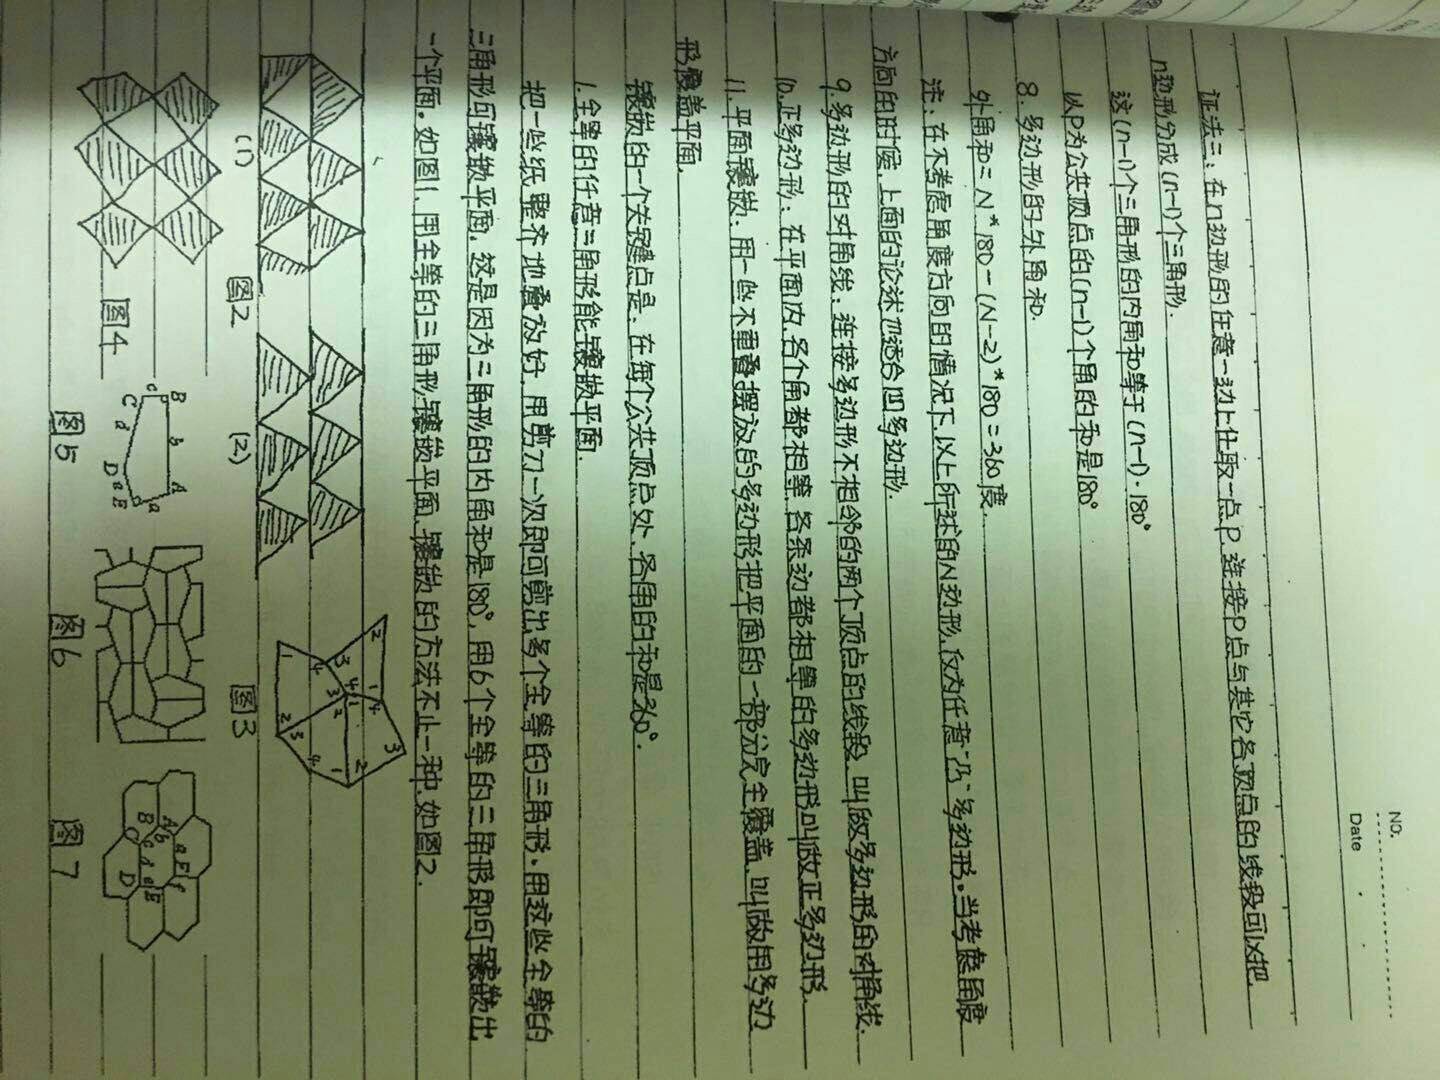 NO.
Date
证法三：在n边形的任意一边上任取一点P，连接P点与其它各顶点的线段可以把
n边形分成(n-1)个三角形.
这(n-1)个三角形的内角和等于(n-1)·180°
以P为公共顶点的(n-1)个角的和是180°
8.多边形的外角和.
外角和=N*180-(N-2)*180=360度.
注：在不考虑角度方向的情况下，以上所述的N边形，仅为任意'凸'多边形。当考虑角度
方向的时候，上面的论述也适合凹多边形.
9.多边形的对角线：连接多边形不相邻的两个顶点的线段，叫做多边形的对角线.
10.正多边形：在平面内，各个角都相等，各条边都相等的多边形叫做正多边形.
11.平面镶嵌：用一些不重叠摆放的多边形把平面的一部分完全覆盖，叫做用多边
形覆盖平面.
镶嵌的一个关键点是：在每个公共顶点处，各角的和是360°.
1.全等的任意三角形能镶嵌平面.
把一些纸整齐地叠放好，用剪刀一次即可剪出多个全等的三角形.用这些全等的
三角形可镶嵌平面，这是因为三角形的内角和是180°，用6个全等的三角形即可镶嵌出
一个平面。如图1，用全等的三角形镶嵌平面，镶嵌的方法不止一种，如图2.
(1)
图2
(2)
图3
1 4 2 3
2 3 4 1
3 4 1 2
1 4 3 2
图4
B b A a
C c d D a E
图5
图6
A B C D E F
a b c d e f
图7